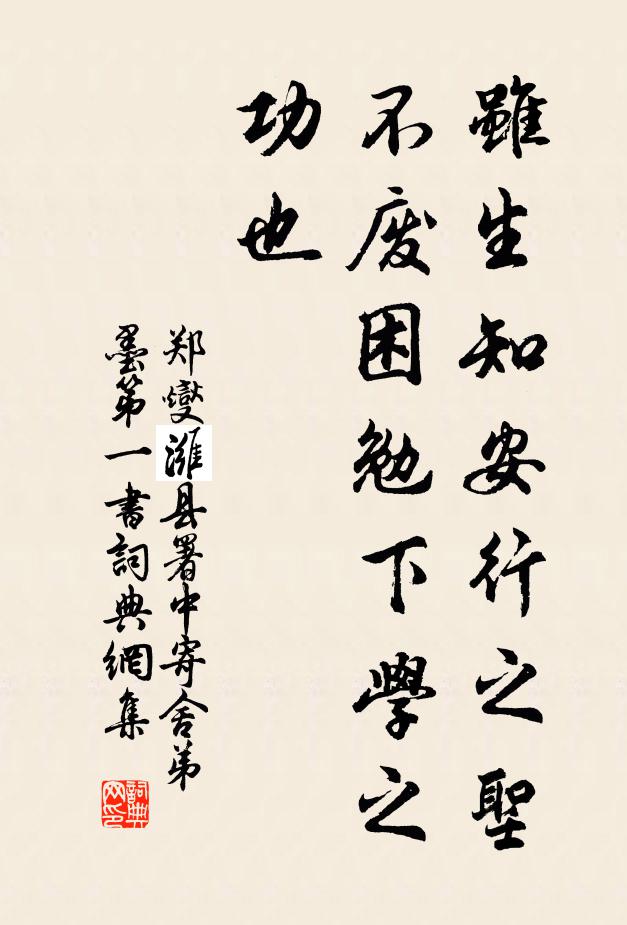 雖生知安行之聖
不废困勉下學之
功也
郑燮潍县署中寄舍弟
墨第一書詞典網集
詞典
网印